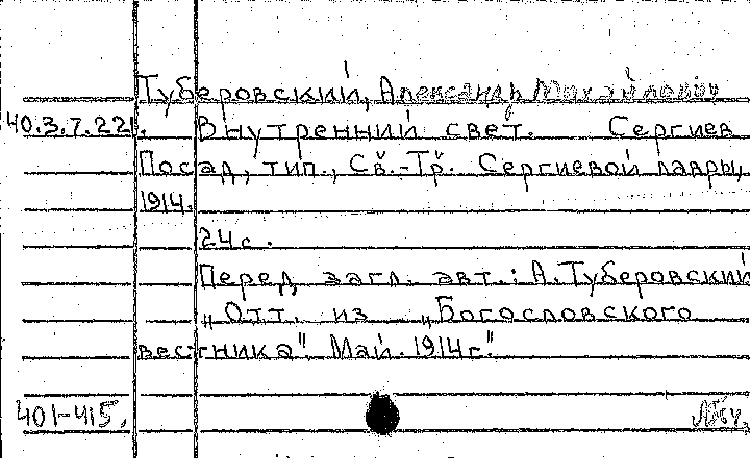 Туберовский, Александр Михайлович
40.3.7.221. Внутренний свет. Сергиев
Посад, тип., Св.-Тр. Сергиевой лавры,
1914.
24 с.
Перед загл. авт.: А. Туберовский
„Отт. из „Богословского
вестника". Май. 1914 г."
401-415.